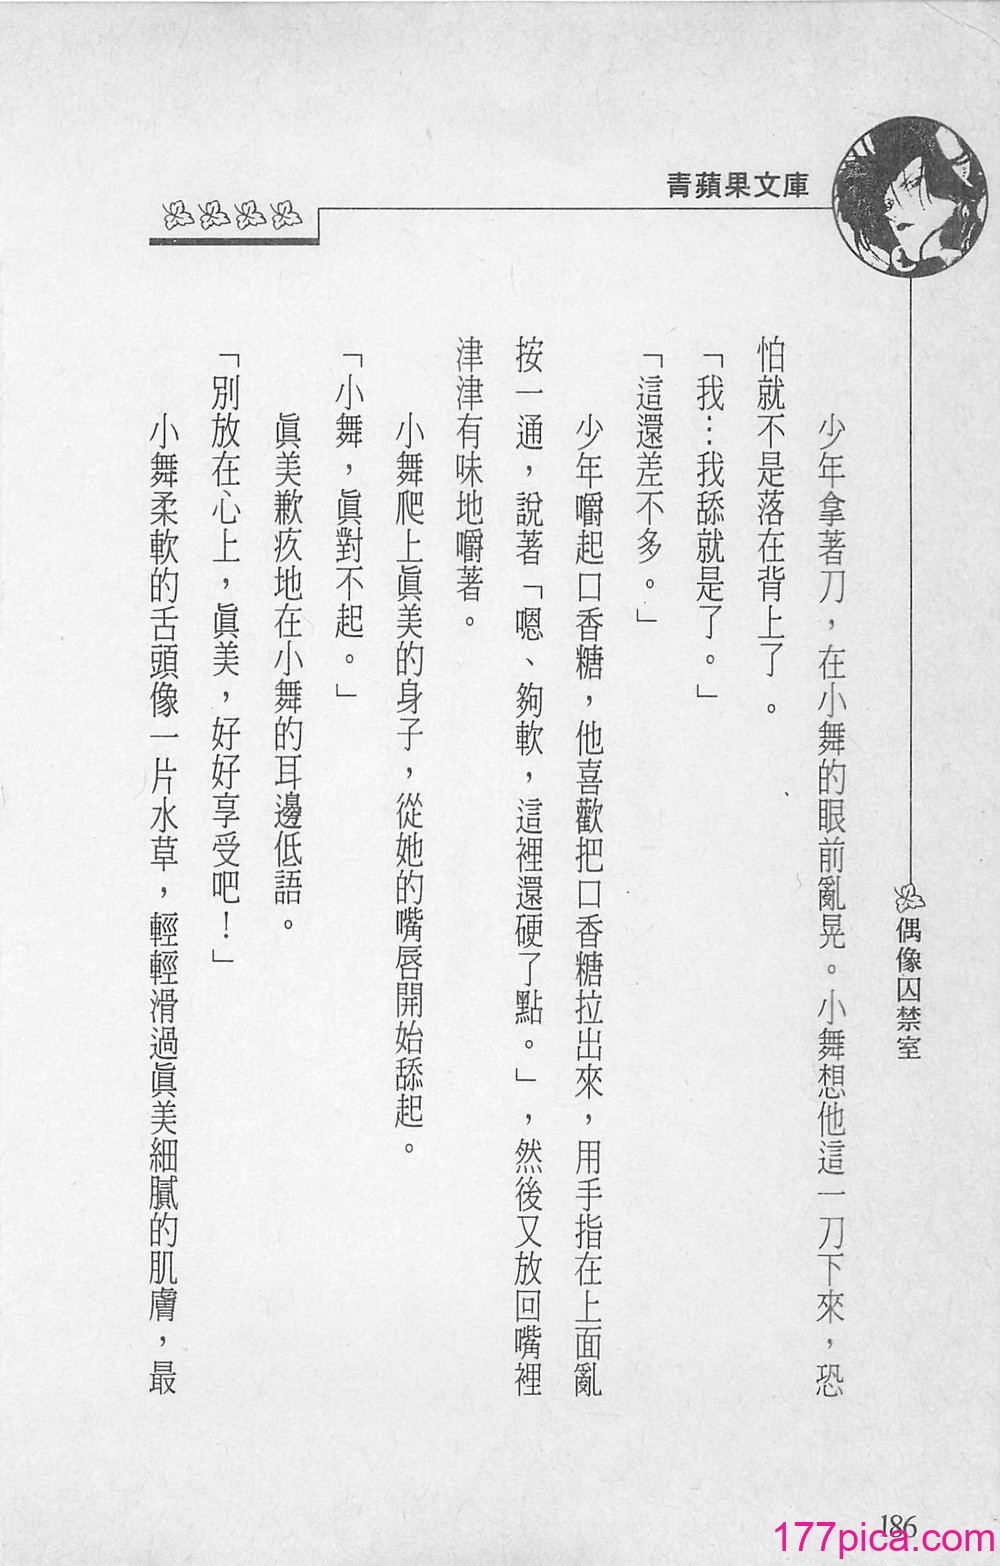 青蘋果文庫
偶像囚禁室
少年拿著刀，在小舞的眼前亂晃。小舞想他這一刀下來，恐
怕就不是落在背上了。
「我…我舔就是了。」
「這還差不多。」
少年嚼起口香糖，他喜歡把口香糖拉出來，用手指在上面亂
按一通，說著「嗯、夠軟，這裡還硬了點。」，然後又放回嘴裡
津津有味地嚼著。
小舞爬上眞美的身子，從她的嘴唇開始舔起。
「小舞，眞對不起。」
眞美歉疚地在小舞的耳邊低語。
「別放在心上，眞美，好好享受吧！」
小舞柔軟的舌頭像一片水草，輕輕滑過眞美細膩的肌膚，最
186
177pica.com